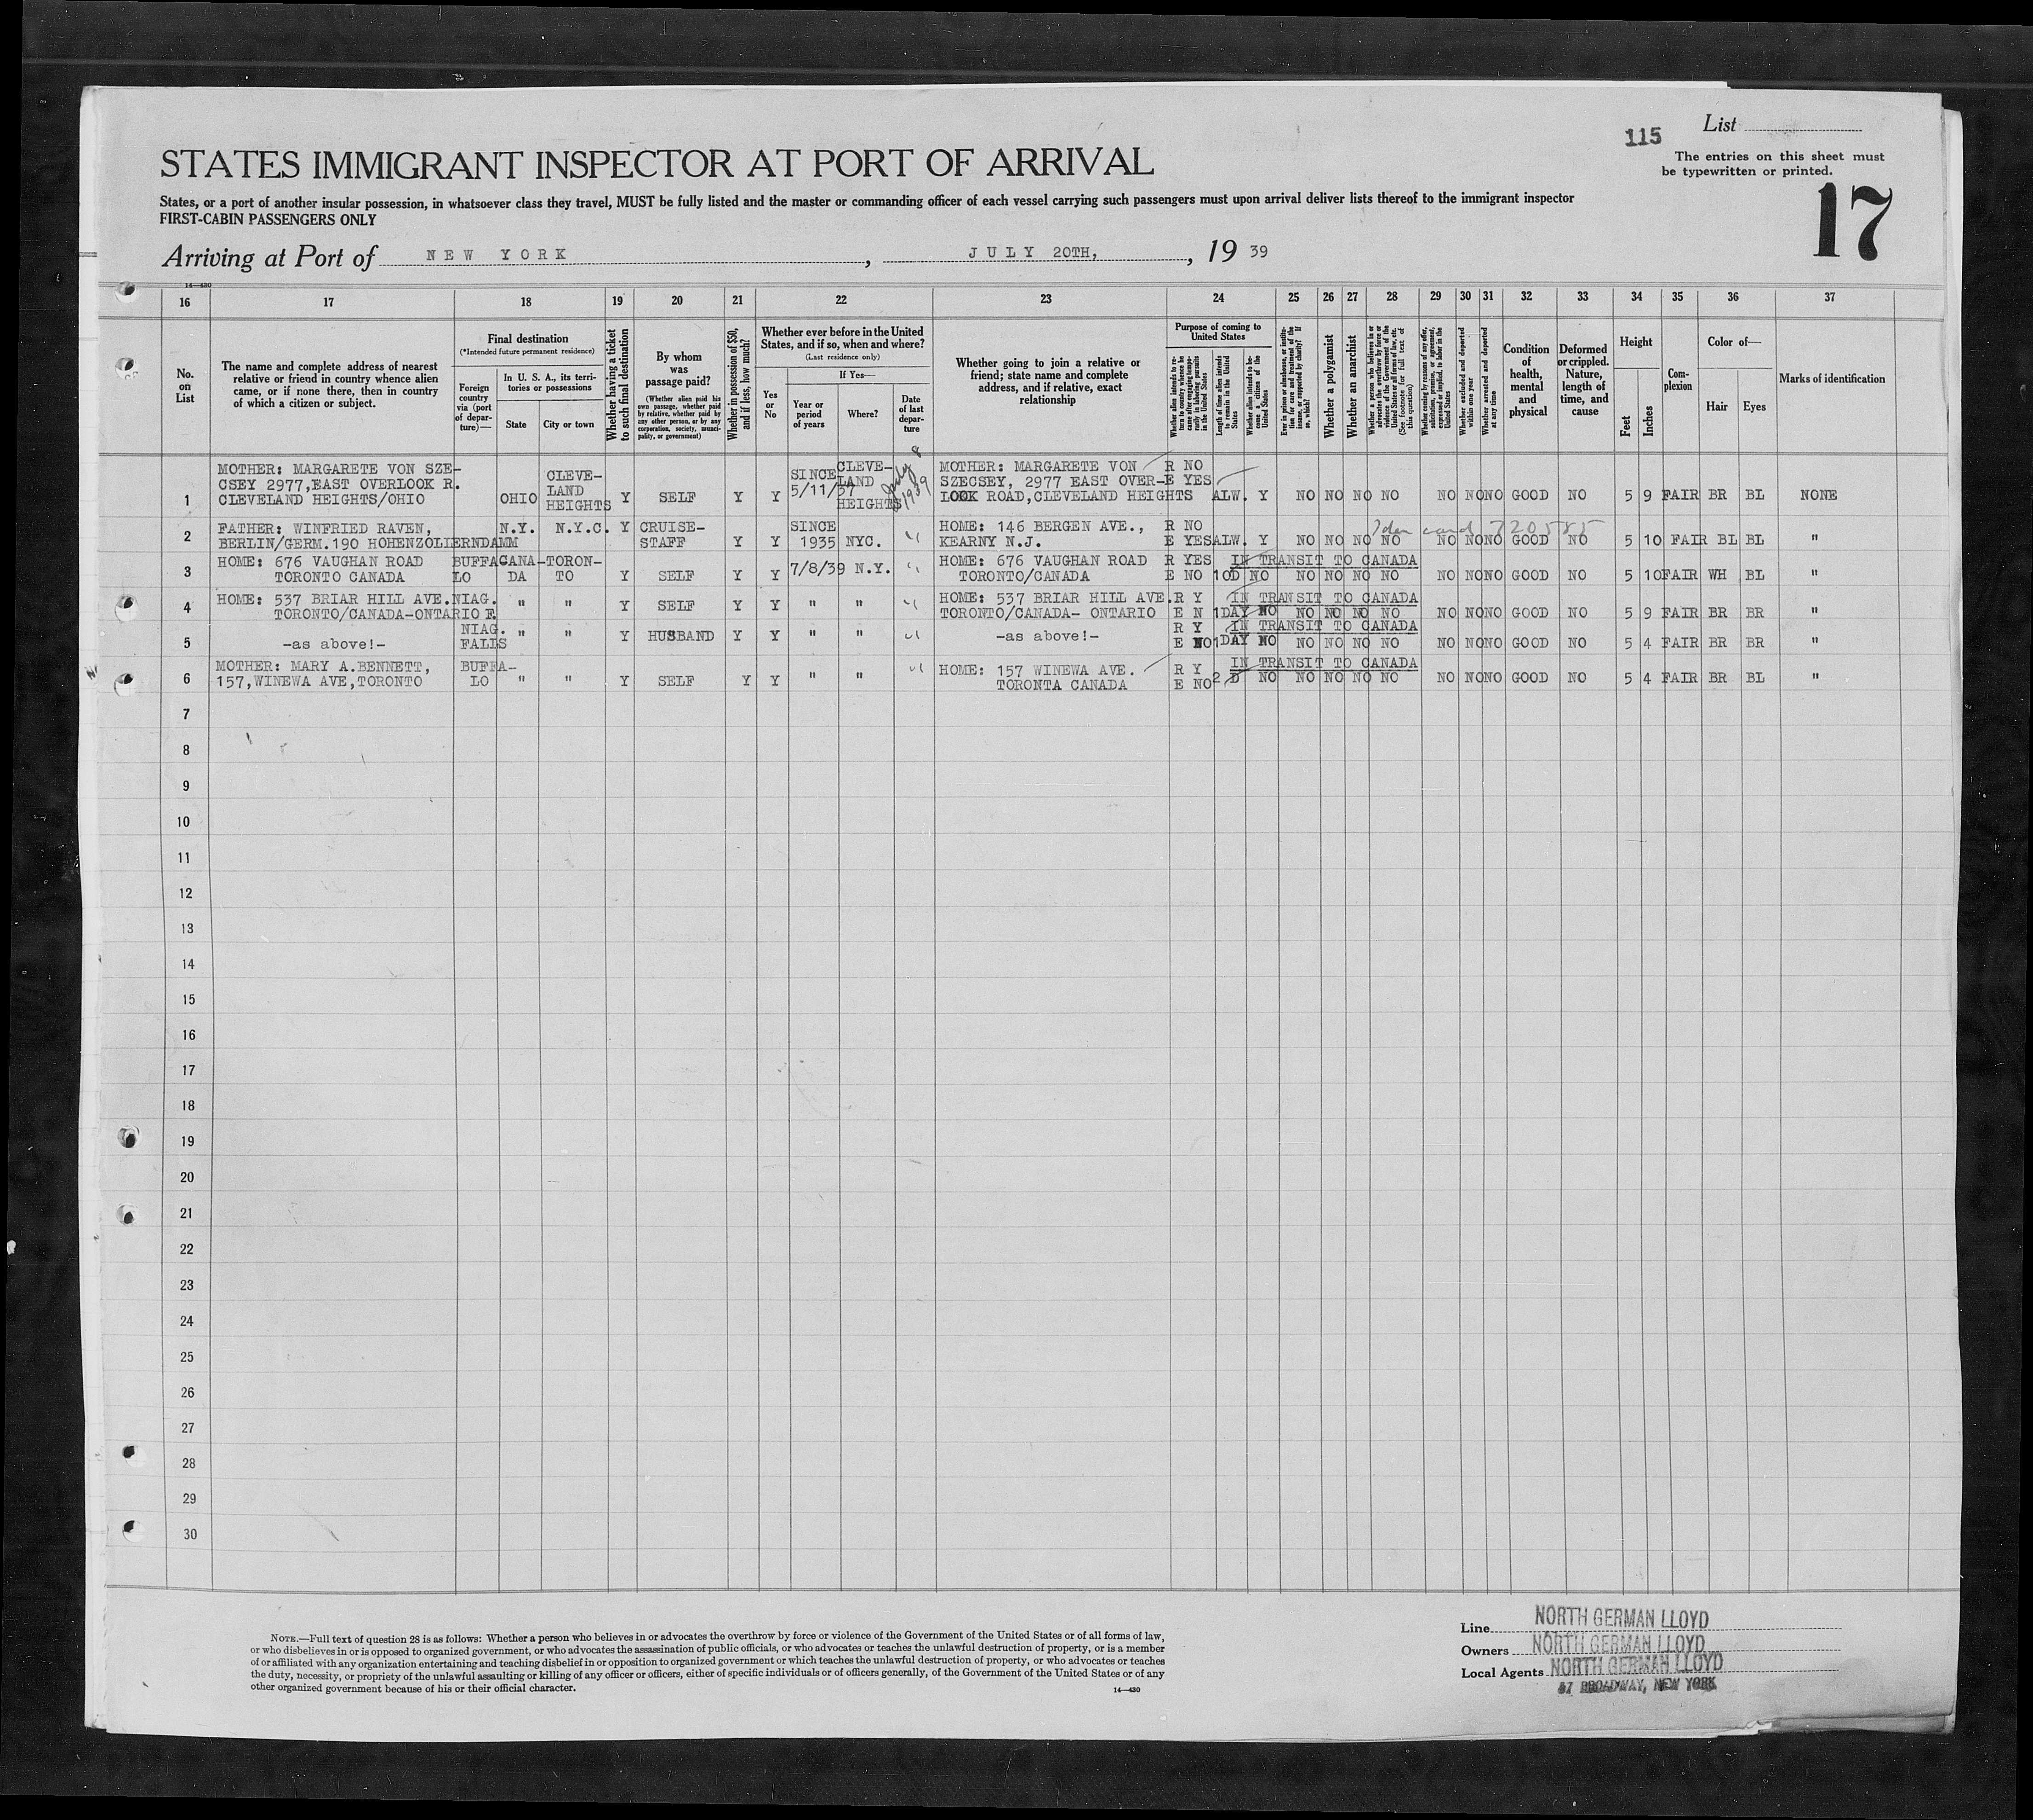 115
List
The entries on this sheet must
be typewritten or printed.
17
STATES IMMIGRANT INSPECTOR AT PORT OF ARRIVAL
States, or a port of another insular possession, in whatsoever class they travel, MUST be fully listed and the master or commanding officer of each vessel carrying such passengers must upon arrival deliver lists thereof to the immigrant inspector
FIRST-CABIN PASSENGERS ONLY
Arriving at Port of NEW YORK, JULY 20TH, 19 39
14—430
16 17 18 19 20 21 22 23 24 25 26 27 28 29 30 31 32 33 34 35 36 37
No. on List
The name and complete address of nearest
relative or friend in country whence alien
came, or if none there, then in country
of which a citizen or subject.
Final destination
(*Intended future permanent residence)
Foreign country via (port of departure)—
In U. S. A., its territories or possessions
State
City or town
Whether having a ticket to such final destination
By whom was passage paid?
(Whether alien paid his own passage, whether paid by relative, whether paid by any other person, or by any corporation, society, municipality, or government)
Whether in possession of $50, and if less, how much?
Whether ever before in the United
States, and if so, when and where?
(Last residence only)
If Yes—
Yes or No
Year or period of years
Where?
Date of last departure
Whether going to join a relative or
friend; state name and complete
address, and if relative, exact
relationship
Purpose of coming to United States
Whether alien intends to return to country whence he came after engaging temporarily in laboring pursuits in the United States
Length of time alien intends to remain in the United States
Whether alien intends to become a citizen of the United States
Ever in prison or almshouse, or institution for care and treatment of the insane, or supported by charity? If so, which?
Whether a polygamist
Whether an anarchist
Whether a person who believes in or advocates the overthrow by force or violence of the Government of the United States or all forms of law, etc. (See footnote for full text of this question)
Whether coming by reasons of any offer, solicitation, promise, or agreement, expressed or implied, to labor in the United States
Whether excluded and deported within one year
Whether arrested and deported at any time
Condition of health, mental and physical
Deformed or crippled. Nature, length of time, and cause
Height
Feet
Inches
Complexion
Color of—
Hair
Eyes
Marks of identification
1 MOTHER: MARGARETE VON SZE-
CSEY 2977,EAST OVERLOOK R.
CLEVELAND HEIGHTS/OHIO
OHIO CLEVE-
LAND
HEIGHTS Y SELF Y Y SINCE
5/11/37 CLEVE-
LAND
HEIGHTS July 8
1939
MOTHER: MARGARETE VON
SZECSEY, 2977 EAST OVER-
LOOK ROAD,CLEVELAND HEIGHTS
R NO
E YES
ALW. Y NO NO NO NO NO NO NO GOOD NO 5 9 FAIR BR BL NONE
2 FATHER: WINFRIED RAVEN,
BERLIN/GERM.190 HOHENZOLLERNDAMM
N.Y. N.Y.C. Y CRUISE-
STAFF Y Y SINCE
1935 NYC. "
HOME: 146 BERGEN AVE.,
KEARNY N.J.
R NO
E YES ALW. Y NO NO NO NO NO NO NO GOOD NO 5 10 FAIR BL BL "
Iden card 720585
3 HOME: 676 VAUGHAN ROAD
TORONTO CANADA
BUFFA
LO CANA-
DA TORON-
TO Y SELF Y Y 7/8/39 N.Y. "
HOME: 676 VAUGHAN ROAD
TORONTO/CANADA
R YES IN TRANSIT TO CANADA
E NO 10D NO NO NO NO NO NO NO NO GOOD NO 5 10 FAIR WH BL "
4 HOME: 537 BRIAR HILL AVE.
TORONTO/CANADA-ONTARIO
NIAG.
F. " " Y SELF Y Y " " "
HOME: 537 BRIAR HILL AVE.
TORONTO/CANADA- ONTARIO
R Y IN TRANSIT TO CANADA
E N 1DAY NO NO NO NO NO NO NO NO GOOD NO 5 9 FAIR BR BR "
5 -as above!-
NIAG.
FALLS " " Y HUSBAND Y Y " " "
-as above!-
R Y IN TRANSIT TO CANADA
E NO 1DAY NO NO NO NO NO NO NO NO GOOD NO 5 4 FAIR BR BR "
6 MOTHER: MARY A.BENNETT,
157,WINEWA AVE,TORONTO
BUFFA-
LO " " Y SELF Y Y " " "
HOME: 157 WINEWA AVE.
TORONTA CANADA
R Y IN TRANSIT TO CANADA
E NO 2 D NO NO NO NO NO NO NO NO GOOD NO 5 4 FAIR BR BL "
7
8
9
10
11
12
13
14
15
16
17
18
19
20
21
22
23
24
25
26
27
28
29
30
NOTE.—Full text of question 28 is as follows: Whether a person who believes in or advocates the overthrow by force or violence of the Government of the United States or of all forms of law,
or who disbelieves in or is opposed to organized government, or who advocates the assassination of public officials, or who advocates or teaches the unlawful destruction of property, or is a member
of or affiliated with any organization entertaining and teaching disbelief in or opposition to organized government or which teaches the unlawful destruction of property, or who advocates or teaches
the duty, necessity, or propriety of the unlawful assaulting or killing of any officer or officers, either of specific individuals or of officers generally, of the Government of the United States or of any
other organized government because of his or their official character.
14—430
Line NORTH GERMAN LLOYD
Owners NORTH GERMAN LLOYD
Local Agents NORTH GERMAN LLOYD
57 BROADWAY, NEW YORK